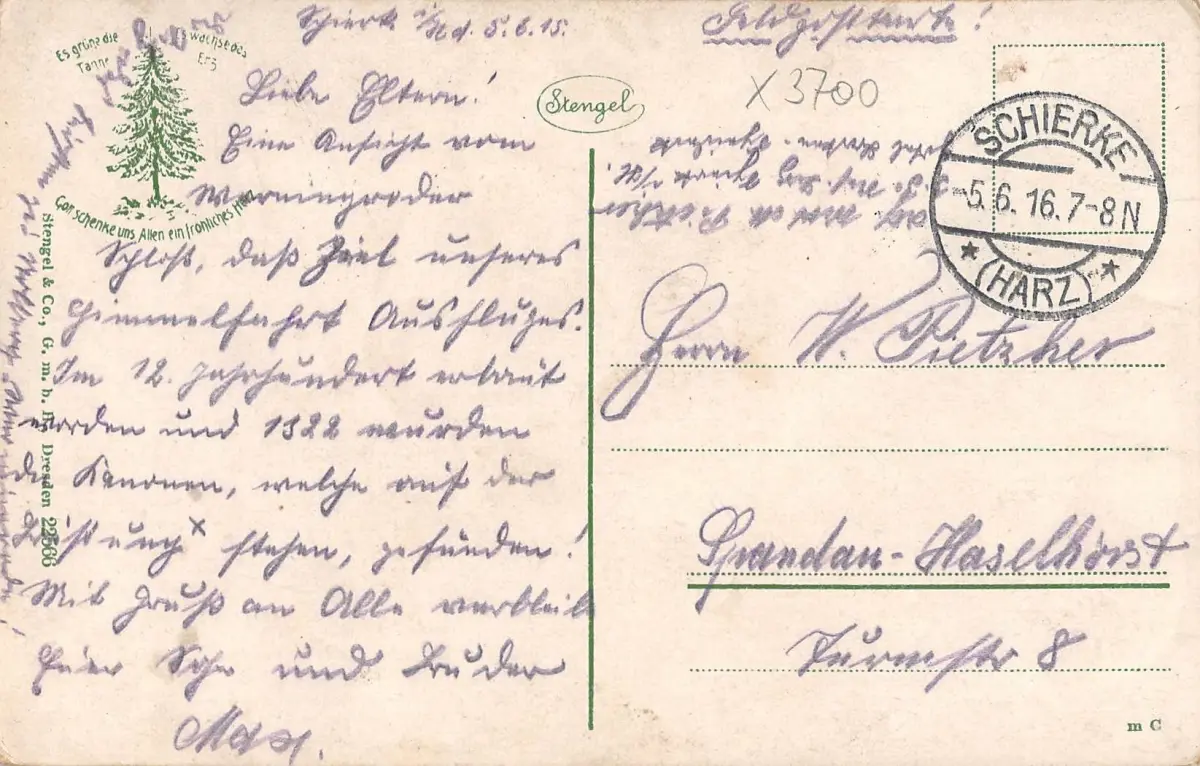 Schierke 5.6.15.
Feldpostkarte!
Es grüne die Tanne
Es wachse das Erz
Gott schenke uns Allen ein fröhliches Herz
Stengel
X 3700
SCHIERKE
-5.6.16.7-8N
(HARZ)
Liebe Eltern!
Eine Ansicht vom
Werningroder
Schloß, daß Ziel unseres
Himmelfahrt Ausfluges.
Im 12. Jahrhundert erbaut
worden und 1822 wurden
die Kanonen, welche auf der
stehen, gefunden!
Mit Gruß an Alle verbleib
Euer Sohn und Bruder
Max.
Stengel & Co., G. m. b. H., Dresden 22566
Herrn W. Pietzker
Spandau-Haselhorst
Turmstr 8
m C